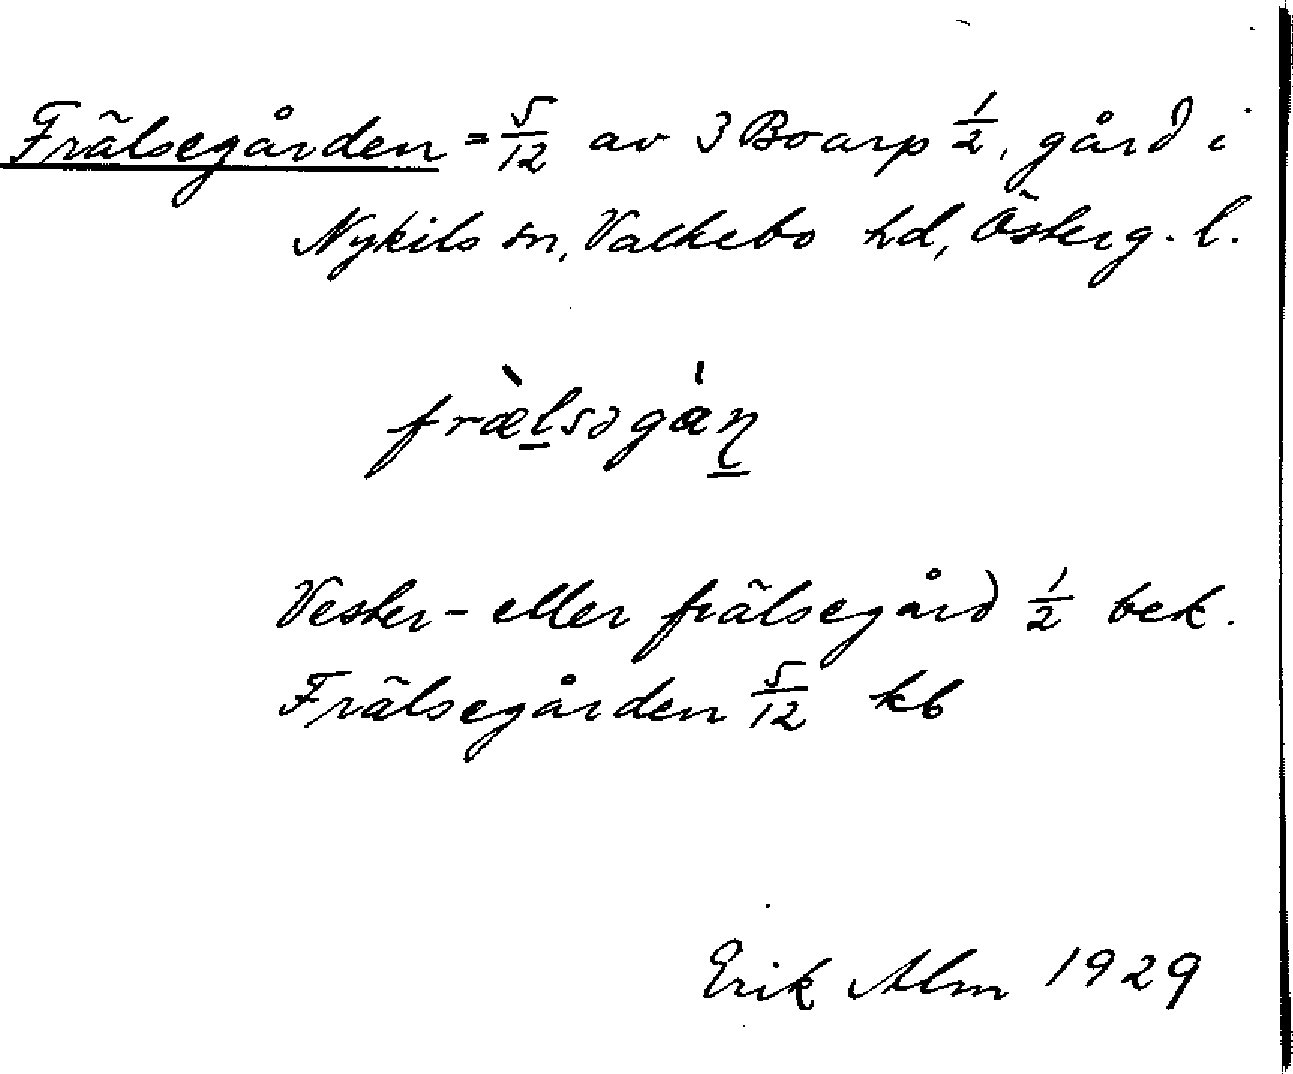 Frälsegården = 5/12 av 3 Boarp 1/2, gård i
Nykils sn, Valkebo hd, Österg. l.
fræ̀lsəgàṇ
Vester- eller frälsegård 1/2 bek.
Frälsegården 5/12 kb
Erik Alm 1929